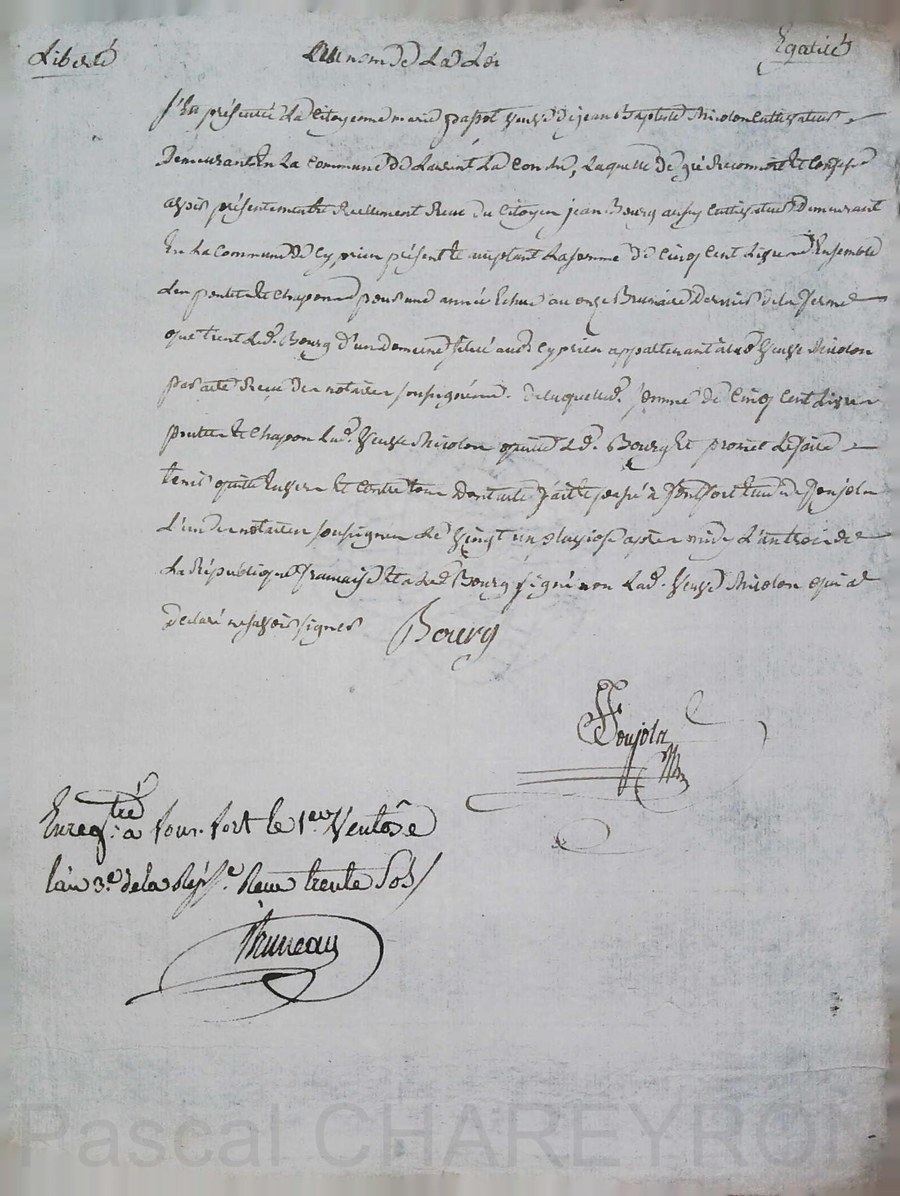 Liberté Au nom de La Loi Egalité
S'Est présenté La Citoyenne marie passot veuve de jean Baptiste Nicolon Cultivateur
Demeurant En La Commune de Laurent La Conche, Laquelle de gré Reconnoit Et Confesse
avoir présentement Et Reellement Receu du Citoyen jean Bourg aussy Cultivateur Demeurant
En La Commune de Cyprien présent Et acceptant La somme de Cinq Cent Livres Ensemble
Les Et Chapons pour une année Echue au onze Brumaire Dernier de la ferme
que tient Led. Bourg d'un domaine situé aud. Cyprien appartenant à lad. veuve Nicolon
par acte Receu des notaires soussignés. de laquelle d. somme de Cinq Cent Livres
Et Chapon Lad. veuve Nicolon quitte Led. Bourg Et promet Le faire
tenir quitte Envers Et Contre tous dont acte fait Et passé à fontfort Etude de Poujola
L'un des notaires soussignés Le vingt un pluviose après midy L'an trois de
La République francaise Et a Led. Bourg signé non Lad. veuve Nicolon qui a
declaré ne savoir signer Bourg
Poujola
Nre
Enregtré. a fonfort le 1er Ventôse
l'an 3.e de la Rép.e Reçu trente Sols
Bruneau
Pascal CHAREYRON